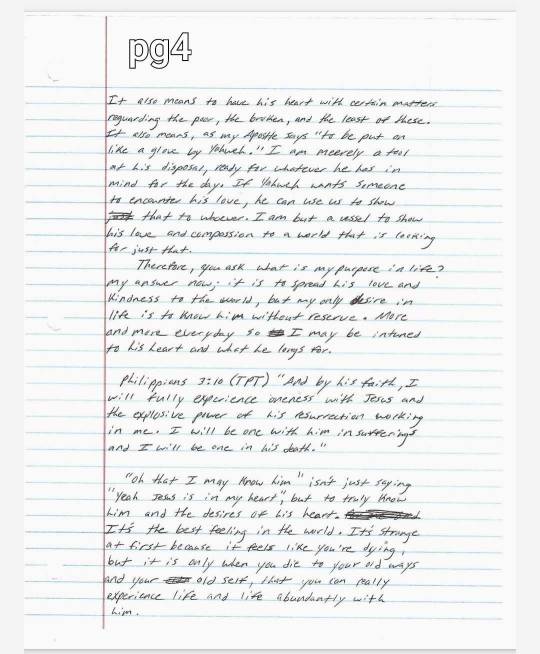 pg4
It also means to have his heart with certain matters
reguarding the poor, the broken, and the least of these.
It also means, as my Apostle says "to be put on
like a glove by Yahweh." I am meerely a tool
at his disposal, ready for whatever he has in
mind for the day. If Yahweh wants someone
to encounter his love, he can use us to show
that to whoever. I am but a vessel to show
his love and compassion to a world that is looking
for just that.
Therefore, you ask what is my purpose in life?
my answer now; it is to spread his love and
Kindness to the world, but my only desire in
life is to Know him without reserve. More
and more everyday so I may be intuned
to his heart and what he longs for.
Philippians 3:10 (TPT) "And by his faith, I
will fully experience oneness with Jesus and
the explosive power of his resurrection working
in me. I will be one with him in sufferings
and I will be one in his death."
"Oh that I may Know him" isn't just saying
"Yeah Jesus is in my heart", but to truly Know
him and the desires of his heart.
It's the best feeling in the world. It's strange
at first because it feels like you're dying,
but it is only when you die to your old ways
and your old self, that you can really
experience life and life abundantly with
him.